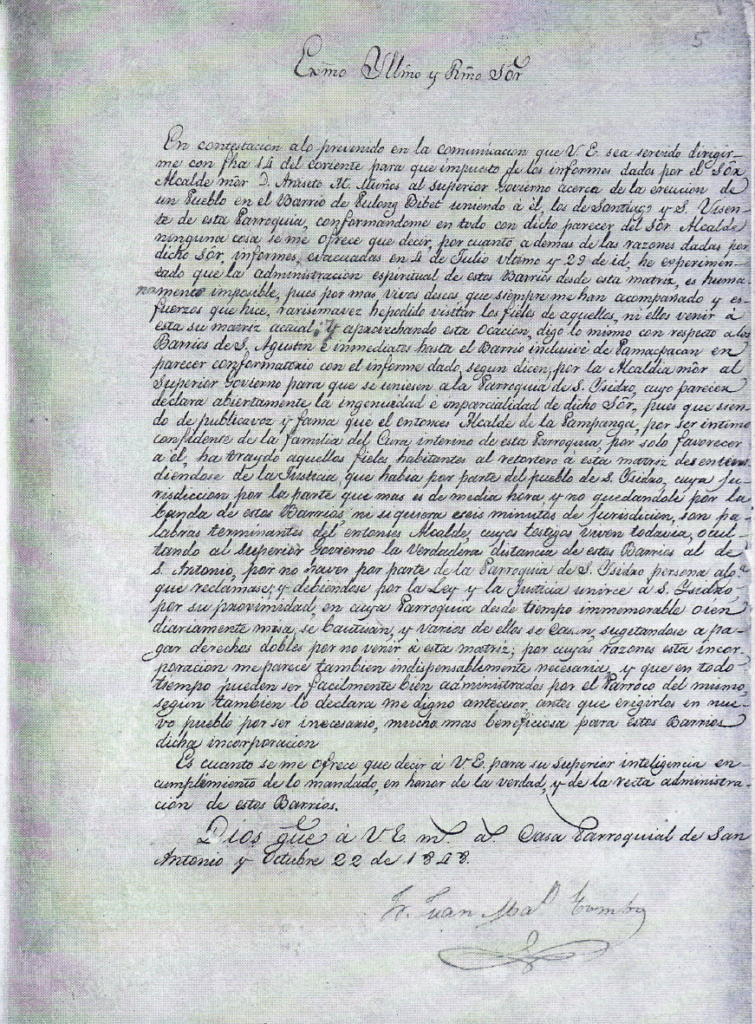 5
Exmo Yllmo y Rmo Sõr
En contestacion alo prevenido en la comunicacion que V.E. sea servido dirigir-
me con fha 14 del coriente para que impuesto de los informes dados por el Sõr
Alcalde mõr D. Aniseto M. Muños al superior Govierno acerca de la ereucion de
un Pueblo en el Barrio de Pulong Bibet uniendo à èl, los de Santiago y S. Visen-
te de esta Parroquia, conformandome en todo con dicho parecer del Sõr Alcalde
ninguna cosa se me ofrece que decir, por cuanto a demas de las razones dadas por
dicho Sõr, informes, evacuadas en 4 de Julio ultimo y 29 de id, he experimen-
tado que la administracion espiritual de estos Barrios desde esta matriz, es huma-
namente imposible, pues por mas vivos deseos, que siempre me han acompañado y es-
fuerzos que hice, rarisimavez hepodido visitar los fieles de aquellos, ni ellos venir à
esta su matriz acaual; Y aprovechando esta ocacion, digo lo mismo con respecto a los
Barrios de S. Agustin è inmediatos hasta el Barrio inclusivè de Pamacpacan en
parecer conformatorio con el informe dado, segun dicen, por la Alcaldia mõr al
Superior Govierno para que se uniesen ala Parroquia de S. Ysidro, cuyo parecer
declara abiertamente la ingenuidad è inparcialidad de dicho Sõr, pues que sien-
do de publicavoz y fama que el entonces Alcalde de la Pampanga, por ser intimo
confidense de la familia del Cura, interino de esta Parroquia, por solo favorecer
a èl, ha traydo aquellos fieles habitantes al retortero à esta matriz desenten-
diendose de la Justicia, que habia por parte del pueblo de S. Ysidro, cuya Ju-
risdiccion por la parte que mas es de media hora, y no quedandole por la
banda de estos Barrios ni si quiera ceeis minutos de Jurisdicion, son pa-
labras terminantes del entonses Alcalde, cuyos testigos viven todavia, ocul-
tando al Superior Govierno la Verdadera distancia de estos Barrios al de
S. Antonio, por no haver por parte de la Parroquia de S. Ysidro persona alg.ª
que reclamase; y debiendose por la Ley y la Justicia unirce à S. Ysidro,
por su proximidad, en cuya Parroquia desde tiempo immemorable oien
diariamente misa, se bautisan, y varios de ellos se casan, sugetandose a pa-
gar derechos dobles por no venir à esta matriz; por cuyas razones esta incor-
poracion me parece tambien indispensablemente necesaria, y que en todo
tiempo pueden ser facilmente bien administrados por el Parroco del mismo,
segun tambien lo declara me digno antecesor, antes que erigirlos en nue-
vo pueblo por ser inecesario, mucho mas beneficiosa para estos Barrios
dicha incorporacion
Es cuanto se me ofrece que decir à VE. para su superior inteligencia en
cumplimiento de lo mandado, en honor de la verdad, y de la recta administra-
cion de estos Barrios.
Dios gũe à V E m.ˢ a.ˢ Casa Parroquial de San
Antonio y Octubre 22 de 1848.
Fr. Juan Ma